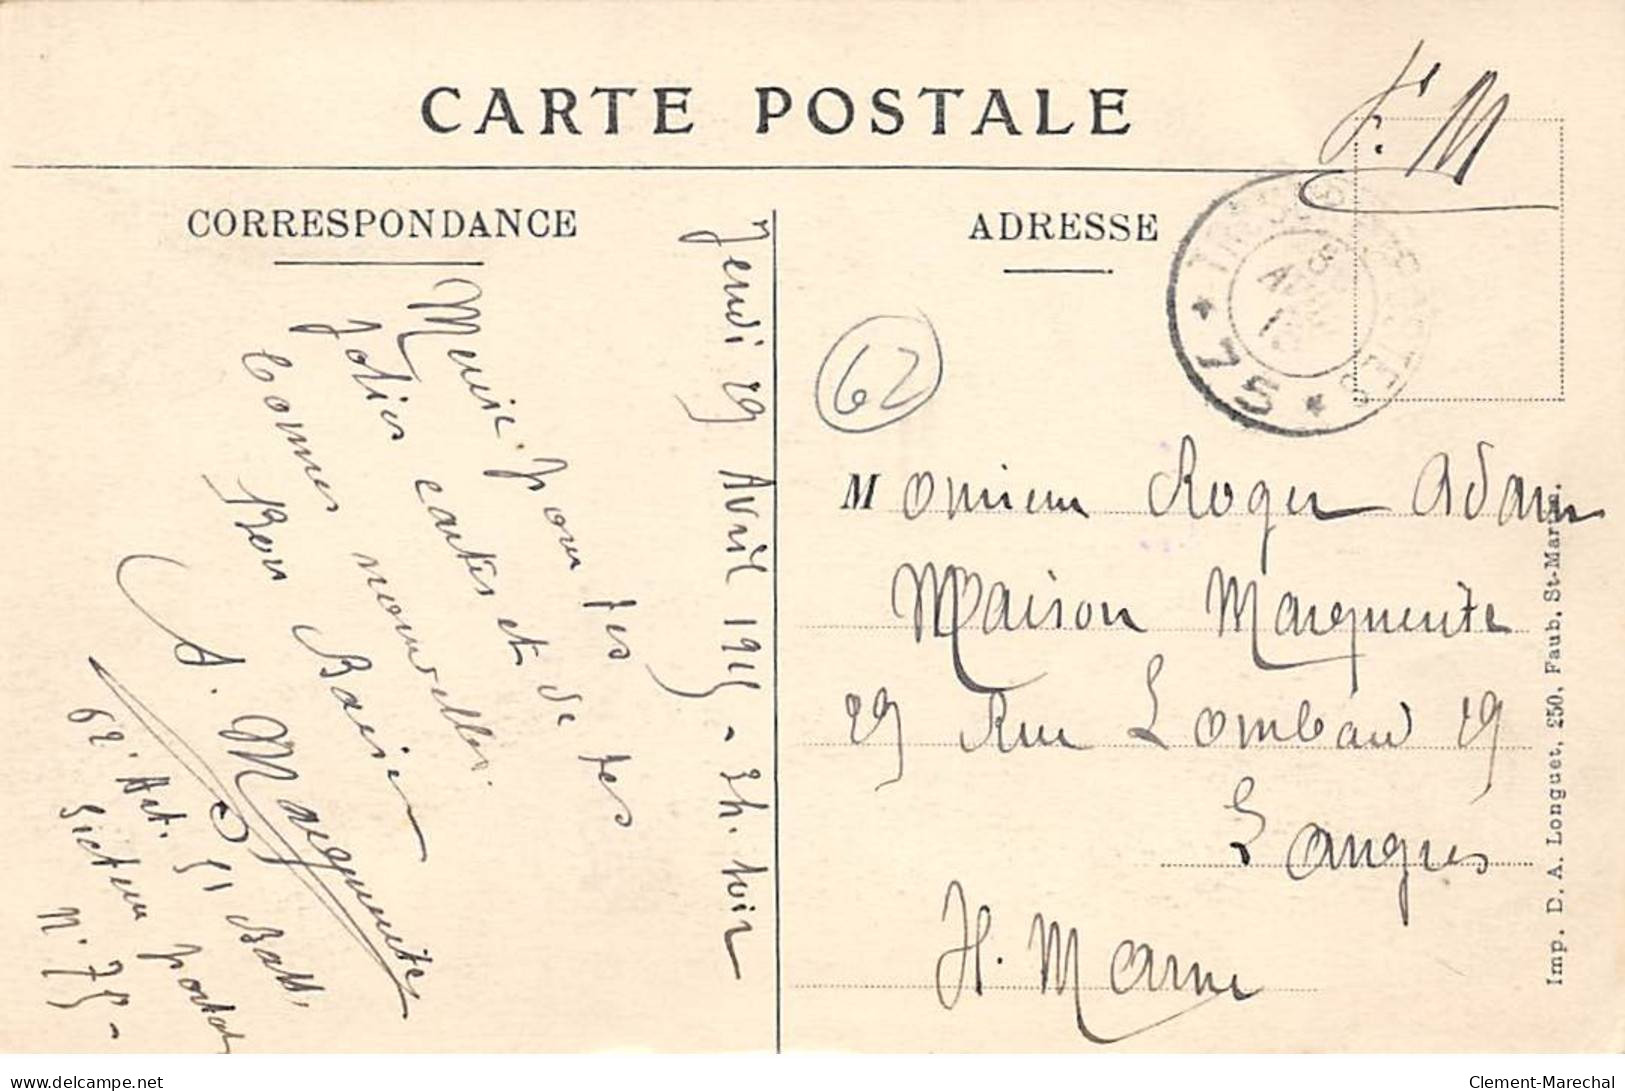 CARTE POSTALE
F. M
CORRESPONDANCE
ADRESSE
TRÉSOR ET POSTES
* 75 *
62
Jeudi 29 Avril 1915 - 2h. soir
Merci pour tes
Jolies cartes et de tes
bonnes nouvelles.
Bon Baiser
A. Marguerite
62e Art. 51 Batt.
Secteur postal
N° 75 -
Monsieur Roger Adam
Maison Marguerite
29 Rue Lombard 29
Langres
H. Marne
Imp. D. A. Longuet, 250, Faub. St-Martin.
delcampe.net
Clement-Marechal